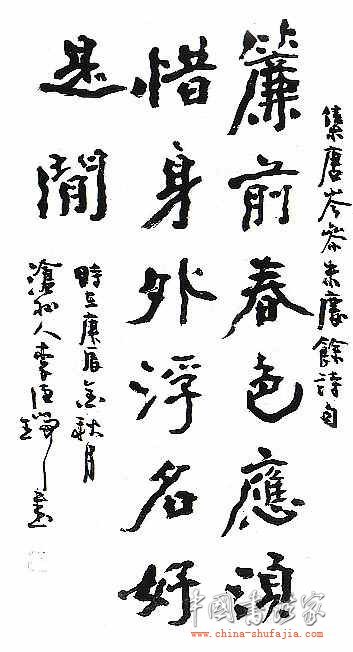 集唐岑參朱慶餘詩句
簾前春色應須
惜身外浮名好
是閒
時在庚辰金秋月
人李書
中國書法家
www.china-shufajia.com